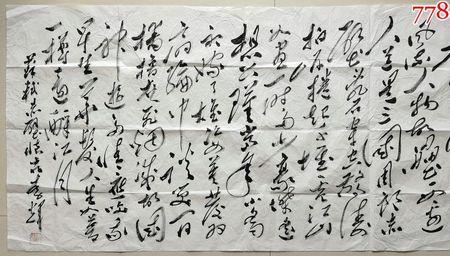 778
风流人物故垒西边
人道是三国周郎赤
壁乱石穿空惊涛
拍岸卷起千堆雪江山
如画一时多少豪杰遥
想公瑾当年小乔
初嫁了雄姿英发羽
扇纶巾谈笑间
樯橹灰飞烟灭故国
神游多情应笑我
早生华发人生如梦
一樽还酹江月
苏轼赤壁怀古